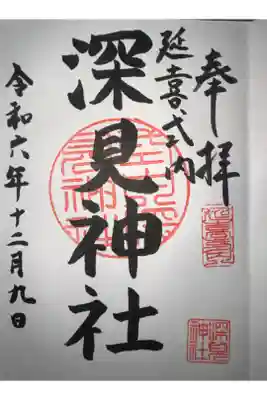 奉拝
延喜式内
深見神社
令和六年十二月九日
深見
神社